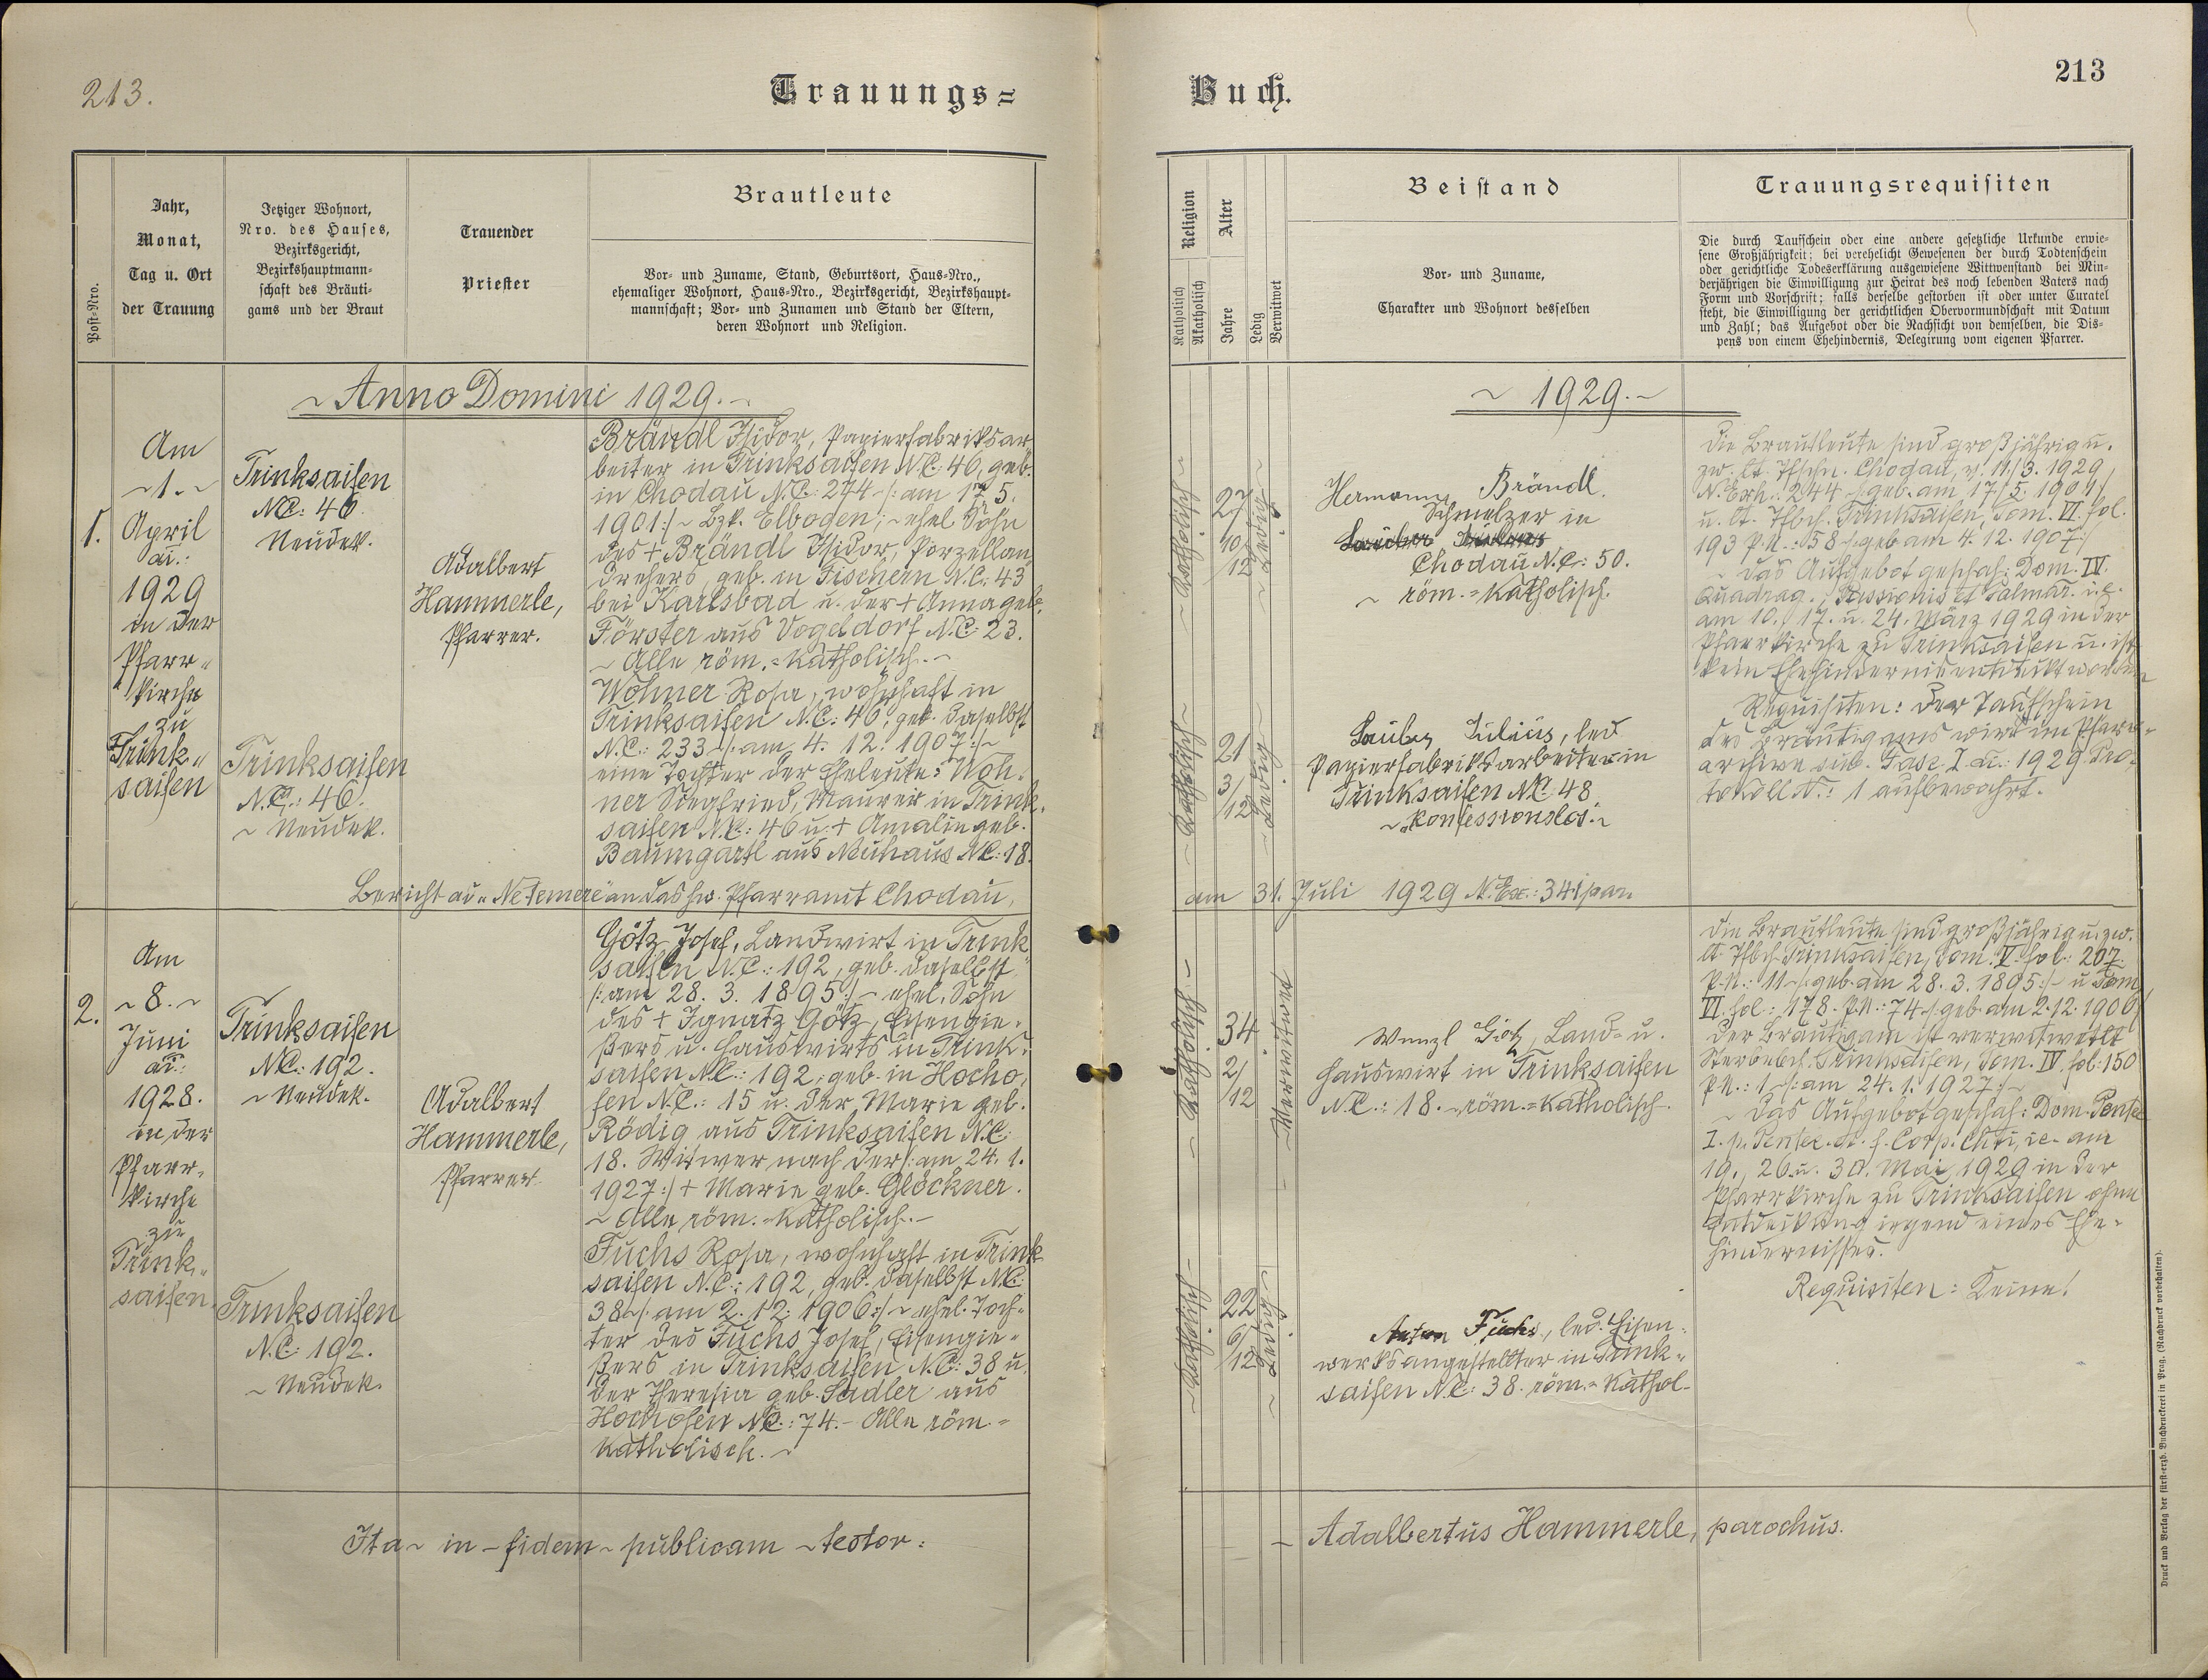 213.
Trauungs=
Post-Nro.
Jahr,
Monat,
Tag u. Ort
der Trauung
Jetziger Wohnort,
Nro. des Hauses,
Bezirksgericht,
Bezirkshauptmann-
schaft des Bräuti-
gams und der Braut
Trauender
Priester
Brautleute
Vor- und Zuname, Stand, Geburtsort, Haus-Nro.,
ehemaliger Wohnort, Haus-Nro., Bezirksgericht, Bezirkshaupt-
mannschaft; Vor- und Zunamen und Stand der Eltern,
deren Wohnort und Religion.
~ Anno Domini 1929. ~
1.
Am
~ 1. ~
April
ai.:
1929
in der
Pfarr„
kirche
zu
Trink„
saifen
Trinksaifen
N.C: 46.
Neudek.
Trinksaifen
N.C.: 46.
~ Neudek.
Adalbert
Hammerle,
Pfarrer.
Brändl Isidor, Papierfabriksar
beiter in Trinksaifen N.C: 46, geb.
in Chodau N.C: 274 ~/: am 17. 5.
1901:/ ~ Bzk. Elbogen; ~ ehel. Sohn
des + Brändl Isidor, Porzellan„
drehers, geb. in Fischern N.C: 43
bei Karlsbad u. der + Anna geb.
Förster aus Vogeldorf N.C: 23.
~ Alle röm.=katholisch. ~
Wohner Rosa, wohnhaft in
Trinksaifen N.C: 46, geb. daselbst
N.C.: 233 ~/: am 4. 12. 1907:/ ~
eine Tochter der Eheleute: Woh„
ner Siegfried, Maurer in Trink„
saifen N.C: 46 u. + Amalie geb.
Baumgartl aus Neuhaus N.C: 18.
Bericht ad „Ne temere" an das hw. Pfarramt Chodau,
2.
Am
~ 8. ~
Juni
ai.:
1928.
in der
Pfarr„
kirche
zu
Trink„
saifen.
Trinksaifen
N.C: 192.
~ Neudek.
Trinksaifen
N.C: 192.
~ Neudek.
Adalbert
Hammerle,
Pfarrer.
Götz Josef, Landwirt in Trink„
saifen N.C.: 192, geb. daselbst
/: am 28. 3. 1895:/ ~ ehel. Sohn
des + Ignatz Götz, Eisengie„
ßers u. Hauswirts in Trink„
saifen N.C.: 192, geb. in Hocho„
fen N.C.: 15 u. der Marie geb.
Rödig aus Trinksaifen N.C:
18. Witwer nach der /: am 24. 1.
1927:/ + Marie geb. Glöckner.
~ Alle röm.=katholisch. ~
Fuchs Rosa, wohnhaft in Trink„
saifen N.C.: 192, geb. daselbst N.C:
38 ~/: am 2. 12. 1906:/ ~ ehel. Toch„
ter des Fuchs Josef, Eisengie„
ßers in Trinksaifen N.C: 38 u.
der Theresia geb. Sadler aus
Hochofen N.C.: 74. ~ Alle röm.=
katholisch. ~
Ita ~ in ~ fidem ~ publicam ~ testor:
Buch.
213
Religion
Katholisch
Akatholisch
Alter
Jahre
Ledig
Verwitwet
Beistand
Vor- und Zuname,
Charakter und Wohnort desselben
Trauungsrequisiten
Die durch Taufschein oder eine andere gesetzliche Urkunde erwie-
sene Großjährigkeit; bei verehelicht Gewesenen der durch Todtenschein
oder gerichtliche Todeserklärung ausgewiesene Wittwenstand bei Min-
derjährigen die Einwilligung zur Heirat des noch lebenden Vaters nach
Form und Vorschrift; falls derselbe gestorben ist oder unter Curatel
steht, die Einwilligung der gerichtlichen Obervormundschaft mit Datum
und Zahl; das Aufgebot oder die Nachsicht von demselben, die Dis-
pens von einem Ehehindernis, Delegirung vom eigenen Pfarrer.
~ 1929. ~
~ Katholisch ~
27
10/
12
~ Ledig ~
Hermann Brändl.
Schmelzer in
Chodau N.C: 50.
~ röm.=katholisch.
~ Katholisch ~
21
3/
12
~ Ledig ~
Lauber Julius, led
Papierfabriksarbeiter in
Trinksaifen N.C: 48
~ konfessionslos. ~
Die Brautleute sind großjährig u.
zw. lt. Tfschn. Chodau, v. 11./3. 1929,
N. Exh.: 244 ~/: geb. am 17./5. 1901:/
u. lt. Tfbch. Trinksaifen, Tom. VI. fol.
193 P.N.: 58 ~/: geb am 4. 12. 1907:/
~ Das Aufgebot geschah: Dom. IV.
Quadrag., Passionis et Palmar. i.e.
am 10., 17. u. 24. März 1929 in der
Pfarrkirche zu Trinksaifen u. ist
kein Ehehindernis entdeckt worden
Requisiten: Der Taufschein
des Bräutigams wird im Pfarr„
archive sub. Fasc. I ai.: 1929. Pro„
tokoll N.: 1 aufbewahrt.
am 31. Juli 1929 N. Ex.: 341/par.
~ Katholisch ~
34
2/
12
~ Verwitwet ~
Wenzl Götz, Land- u.
Hauswirt in Trinksaifen
N.C.: 18. ~ röm.=katholisch ~.
~ Katholisch ~
22
6/
12
~ Ledig ~
Anton Fuchs, led. Eisen„
werksangestellter in Trink„
saifen N.C.: 38. röm.=kathol-
Die Brautleute sind großjährig u. zw.
lt. Tfbch. Trinksaifen, Tom. V. fol.: 207.
P.N.: 11 ~/: geb. am 28. 3. 1895:/ ~ u Tom
VI. fol.: 178. P.N.: 74 ~/: geb. am 2. 12. 1906:/
Der Bräutigam ist verwitwet lt
Sterbebch. Trinksaifen, Tom. IV. fol: 150
P.N.: 1 ~/: am 24. 1. 1927:/ ~
~ Das Aufgebot geschah: Dom. Pentec
I. p. Pentec. et. f. Corp. Chri, i.e. am
19., 26. u. 30. Mai 1929 in der
Pfarrkirche zu Trinksaifen ohne
Entdeckung irgend eines Ehe„
hindernisses.
Requisiten: Keine!
~ Adalbertus Hammerle, parochus.
Druck und Verlag der fürst-erzb. Buchdruckerei in Prag. (Nachdruck vorbehalten).